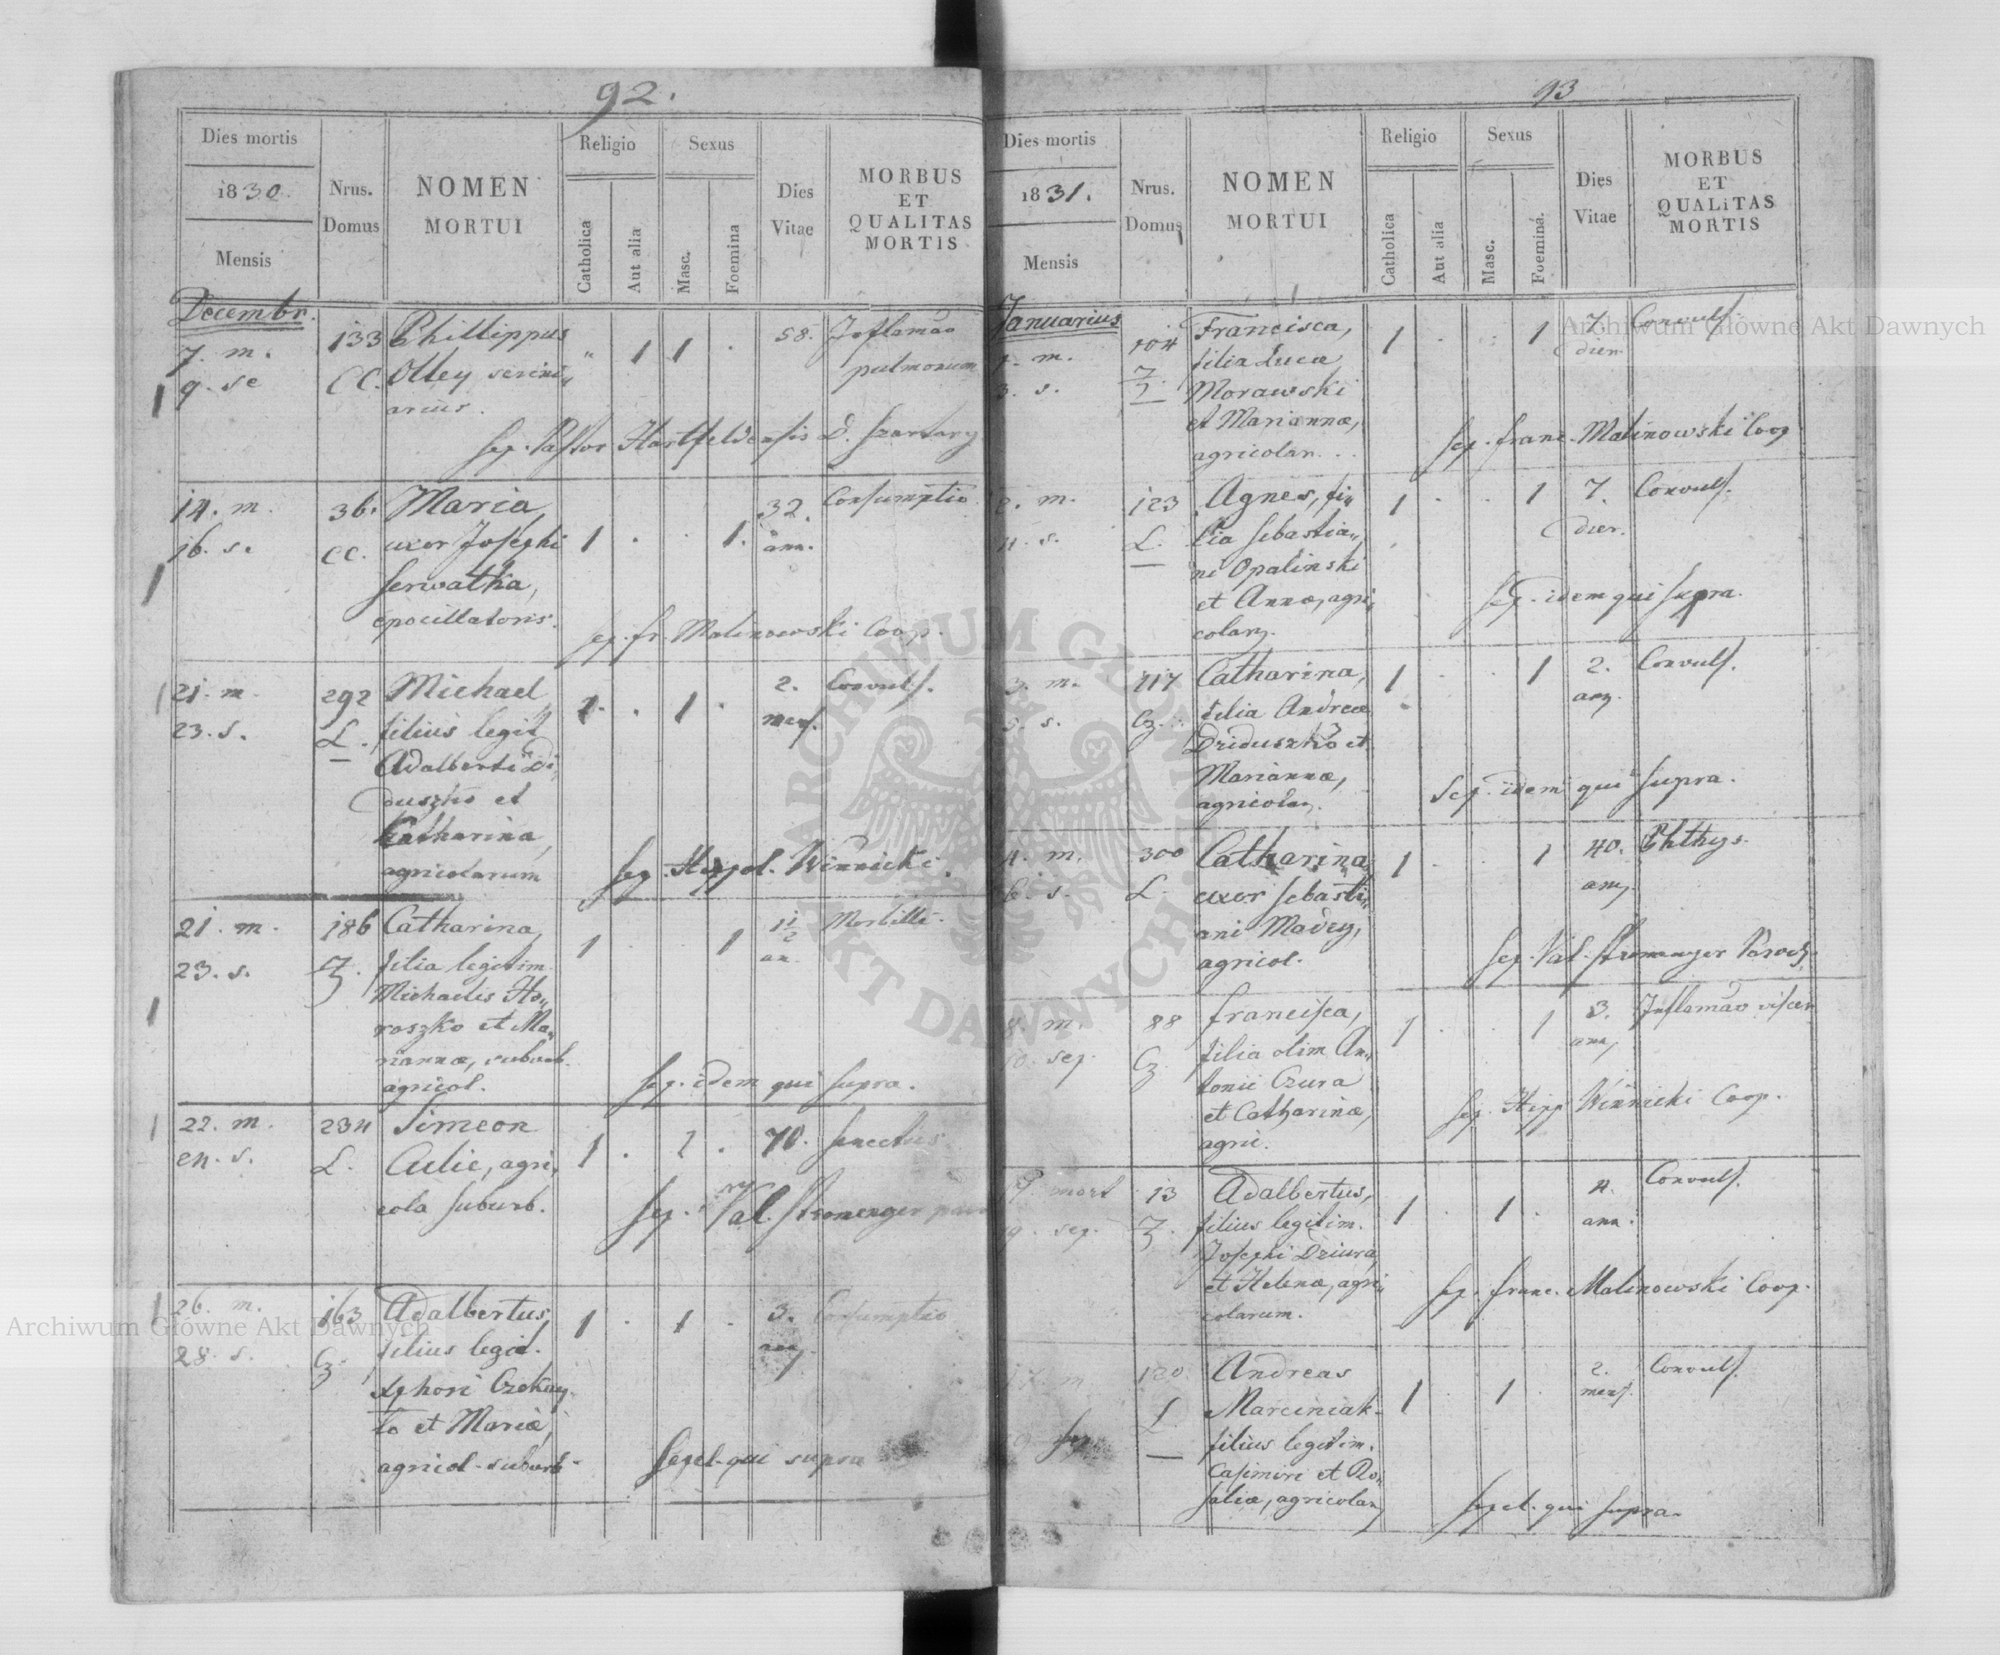 92.
Dies mortis
1830.
Mensis
Nrus.
Domus
NOMEN
MORTUI
Religio
Catholica
Aut alia
Sexus
Masc.
Foemina
Dies
Vitae
MORBUS
ET
QUALITAS
MORTIS
Decembr.
7. m.
9. se
133
CC.
Phillippus
Olley serini„
arius.
" 1 1 .
58.
Inflamão
pulmonum
sep. Pastor Hartfeldensis D.
14. m.
16. s.
36.
CC.
Maria,
uxor Josephi
Serwatka,
epocillatoris.
1 . . 1.
32.
ann.
Consumptio
sep. fr. Malinowski Coop.
21. m.
23. s.
292
L.
Michael
filius legit
Adalberti Di„
duszko et
Catharina,
agricolarum
1. . 1 .
2.
mens.
Convuls.
sep. Hypol. Winnicki.
21. m.
23. s.
186
Z.
Catharina,
filia legitim.
Michaelis Ho„
roszko et Ma„
riannæ, suburb.
agricol.
1 . . 1
1 1/2
an.
Morbilli
sep. idem qui supra.
22. m.
en. s.
234
L.
Simeon
Culic, agri„
cola suburb.
1 . 1 .
70.
senectus
sep. Val. Stromenger
26. m.
28. s.
163
Cz.
Adalbertus,
filius legit.
Czekay„
ło et Mariæ,
agricol. suburb.
1 . 1 .
3.
ann.
Consumptio
sepel. qui supra
93
Dies mortis
1831.
Mensis
Nrus.
Domus
NOMEN
MORTUI
Religio
Catholica
Aut alia
Sexus
Masc.
Foemina.
Dies
Vitae
MORBUS
ET
QUALITAS
MORTIS
Januarius
1. m.
3. s.
104
Francisca,
filia Lucæ
Morawski
et Mariannæ,
agricolar. . .
1 . . 1
7.
dier.
Convuls.
sep. franc. Malinowski Coop
2. m.
4. s.
123
L.
Agnes, fi„
lia Sebastia„
ni Opalinski
et Annæ, agri„
colarz.
1 . . 1
7.
dier.
Convuls.
sep. idem qui supra.
3. m.
5. s.
117
Cz.
Catharina,
filia Andreæ
Dziduszko et
Mariannæ,
agricolar.
1 . . 1
2.
anz.
Convuls.
sep. idem qui supra.
4. m.
6. s.
300
L.
Catharina
uxor Sebasti„
ani Madey,
agricol.
1 . . 1
40.
ann.
Phthys.
sep. Val. Stromenger Paroch.
8. m.
10. sep.
88
Cz.
Francisca,
filia olim An„
tonii Czura
et Catharinæ,
agric.
1 . . 1
3.
ann.
Inflamão viscer.
sep. Hipp Winnicki Coop.
mort
sep.
13
Z.
Adalbertus,
filius legitim.
Josephi Dziura,
et Helenæ, agri„
colarum.
1 . 1 .
4.
ann.
Convuls.
sep. franc. Malinowski Coop.
m
120.
L
Andreas
Marciniak
filius legitim.
Casimiri et Ro„
saliæ, agricolar.
1 . 1 .
2.
mens.
Convuls.
sepel. qui supra.
Archiwum Główne Akt Dawnych
Archiwum Główne Akt Dawnych
ARCHIWUM GŁÓWNE AKT DAWNYCH